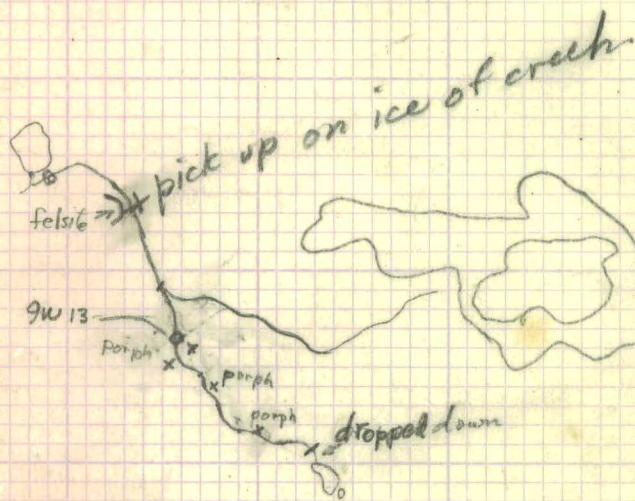 pick up on ice of creek.
felsite
9W 13
porph
porph
porph
dropped down